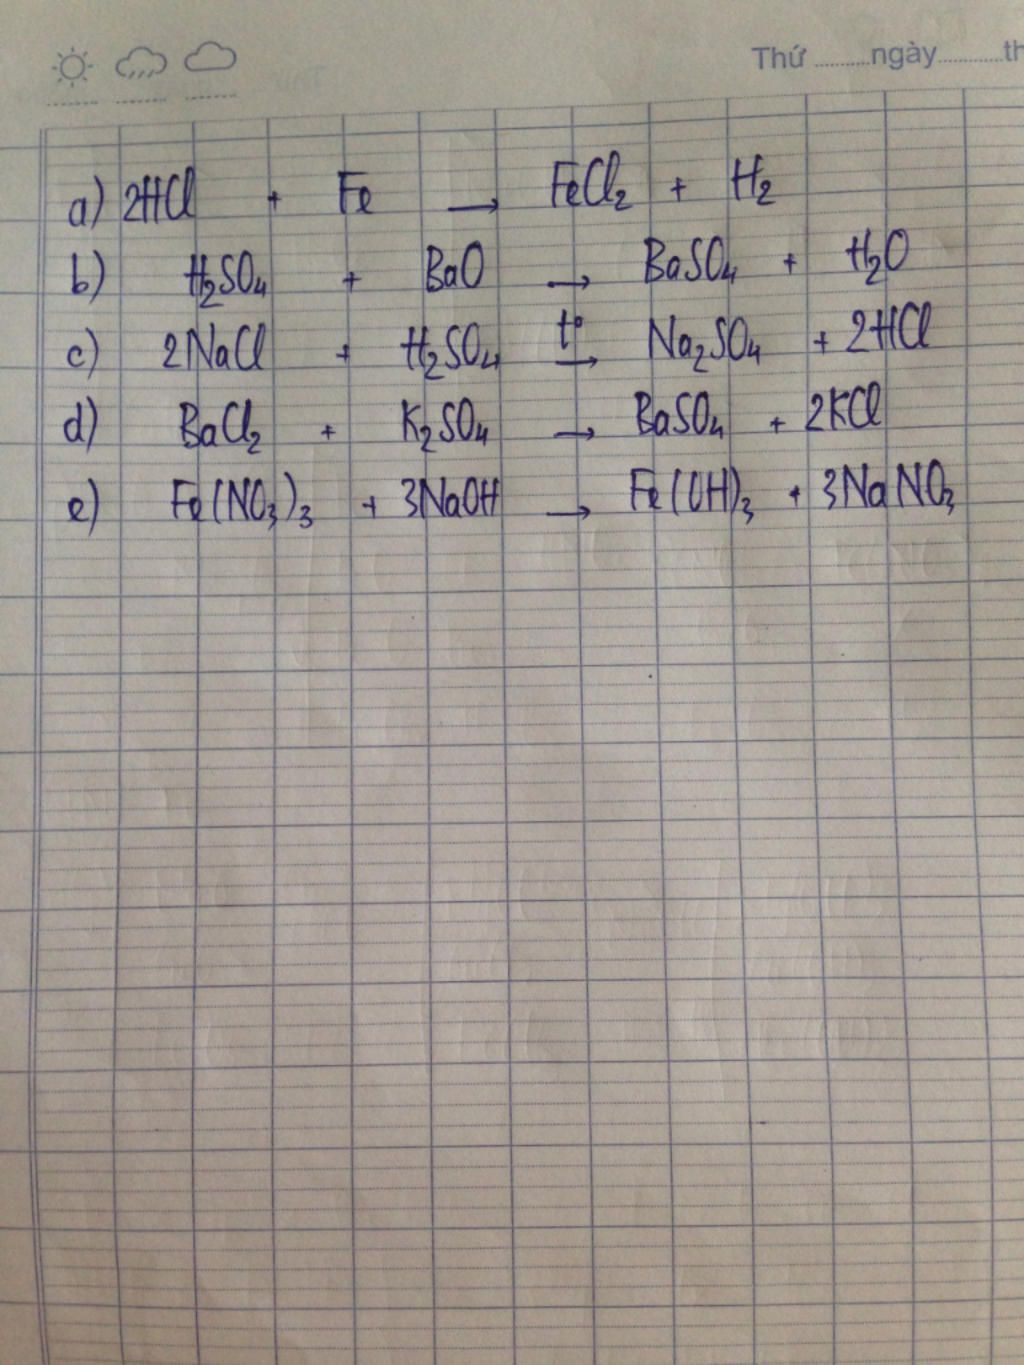 Thứ ..........ngày............th
a) 2HCl + Fe → FeCl₂ + H₂
b) H₂SO₄ + BaO → BaSO₄ + H₂O
c) 2NaCl + H₂SO₄ t°→ Na₂SO₄ + 2HCl
d) BaCl₂ + K₂SO₄ → BaSO₄ + 2KCl
e) Fe(NO₃)₃ + 3NaOH → Fe(OH)₃ + 3NaNO₃